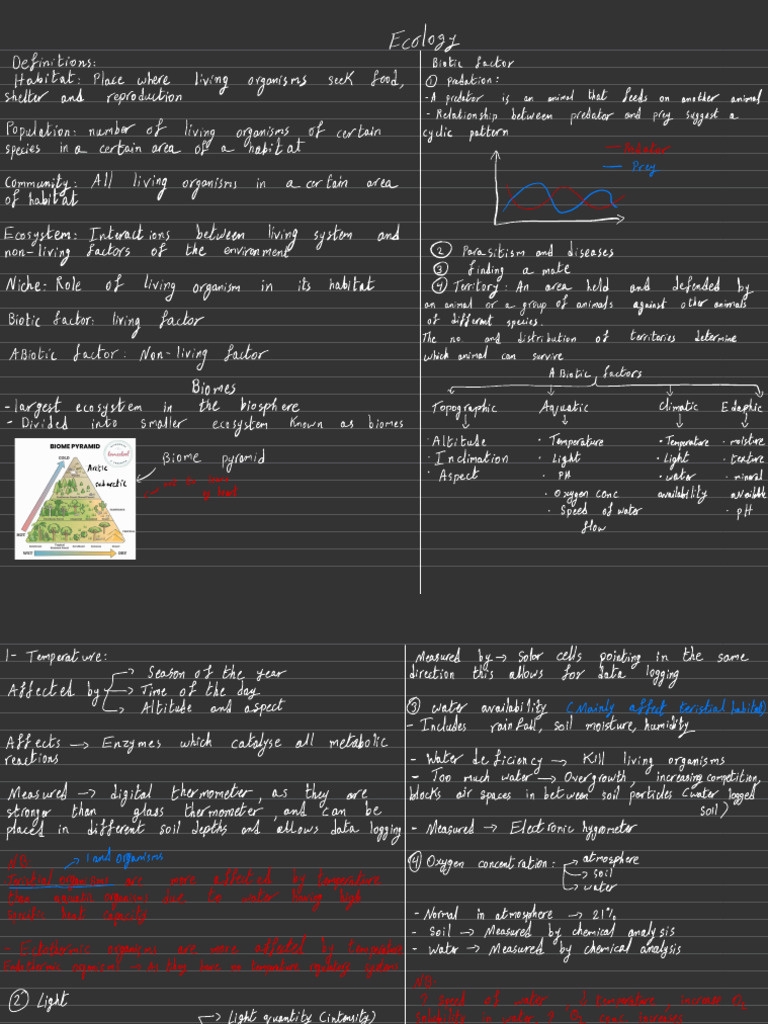 Ecology
Definitions:
Habitat: Place where living organisms seek food,
shelter and reproduction
Population: number of living organisms of certain
species in a certain area of a habitat
Community: All living organisms in a certain area
of habitat
Ecosystem: Interactions between living system and
non-living factors of the environment
Niche: Role of living organism in its habitat
Biotic factor: living factor
ABiotic factor: Non-living factor
Biomes
-largest ecosystem in the biosphere
- Divided into smaller ecosystem known as biomes
BIOME PYRAMID
COLD
Arctic
subarctic
HOT
WET
DRY
Biome pyramid
Biotic factor
① predation:
-A predator is an animal that feeds on another animal
- Relationship between predator and prey suggest a
cyclic pattern
Prey
② Parasitism and diseases
③ finding a mate
④ Territory: An area held and defended by
an animal or a group of animals against other animals
of different species.
The no. and distribution of territories determine
which animal can survive
ABiotic factors
Topographic Aquatic Climatic Edaphic
· Altitude · Temperature · Temperature · moisture
· Inclination · Light · Light · texture
· Aspect · PH · water · mineral
· Oxygen conc availability available
· Speed of water · pH
flow
1- Temperature:
Affected by → Season of the year
→ Time of the day
→ Altitude and aspect
Affects → Enzymes which catalyse all metabolic
reactions
Measured → digital thermometer, as they are
stronger than glass thermometer, and can be
placed in different soil depths and allows data logging
NB:
→ land organisms
Teristial organisms are more affected by temperature
than aquatic organisms due to water having high
specific heat capacity
- Ectothermic organisms are more affected by temperature
Endothermic organism? → As they have no temperature regulating systems
② Light
→ Light quantity (intensity)
Measured by → Solar cells pointing in the same
direction this allows for data logging
③ water availability (Mainly affect teristial habitat)
- Includes rainfall, soil moisture, humidity
- Water deficiency → Kill living organisms
- Too much water → Overgrowth, increasing competition,
blocks air spaces in between soil particles (water logged
soil)
- Measured → Electronic hygrometer
④ Oxygen concentration: → atmosphere
→ soil
→ water
- Normal in atmosphere → 21%
- Soil → Measured by chemical analysis
- Water → Measured by chemical analysis
NB:
↑ speed of water, ↓ temperature, increase O₂
solubility in water ↑ O₂ conc increases